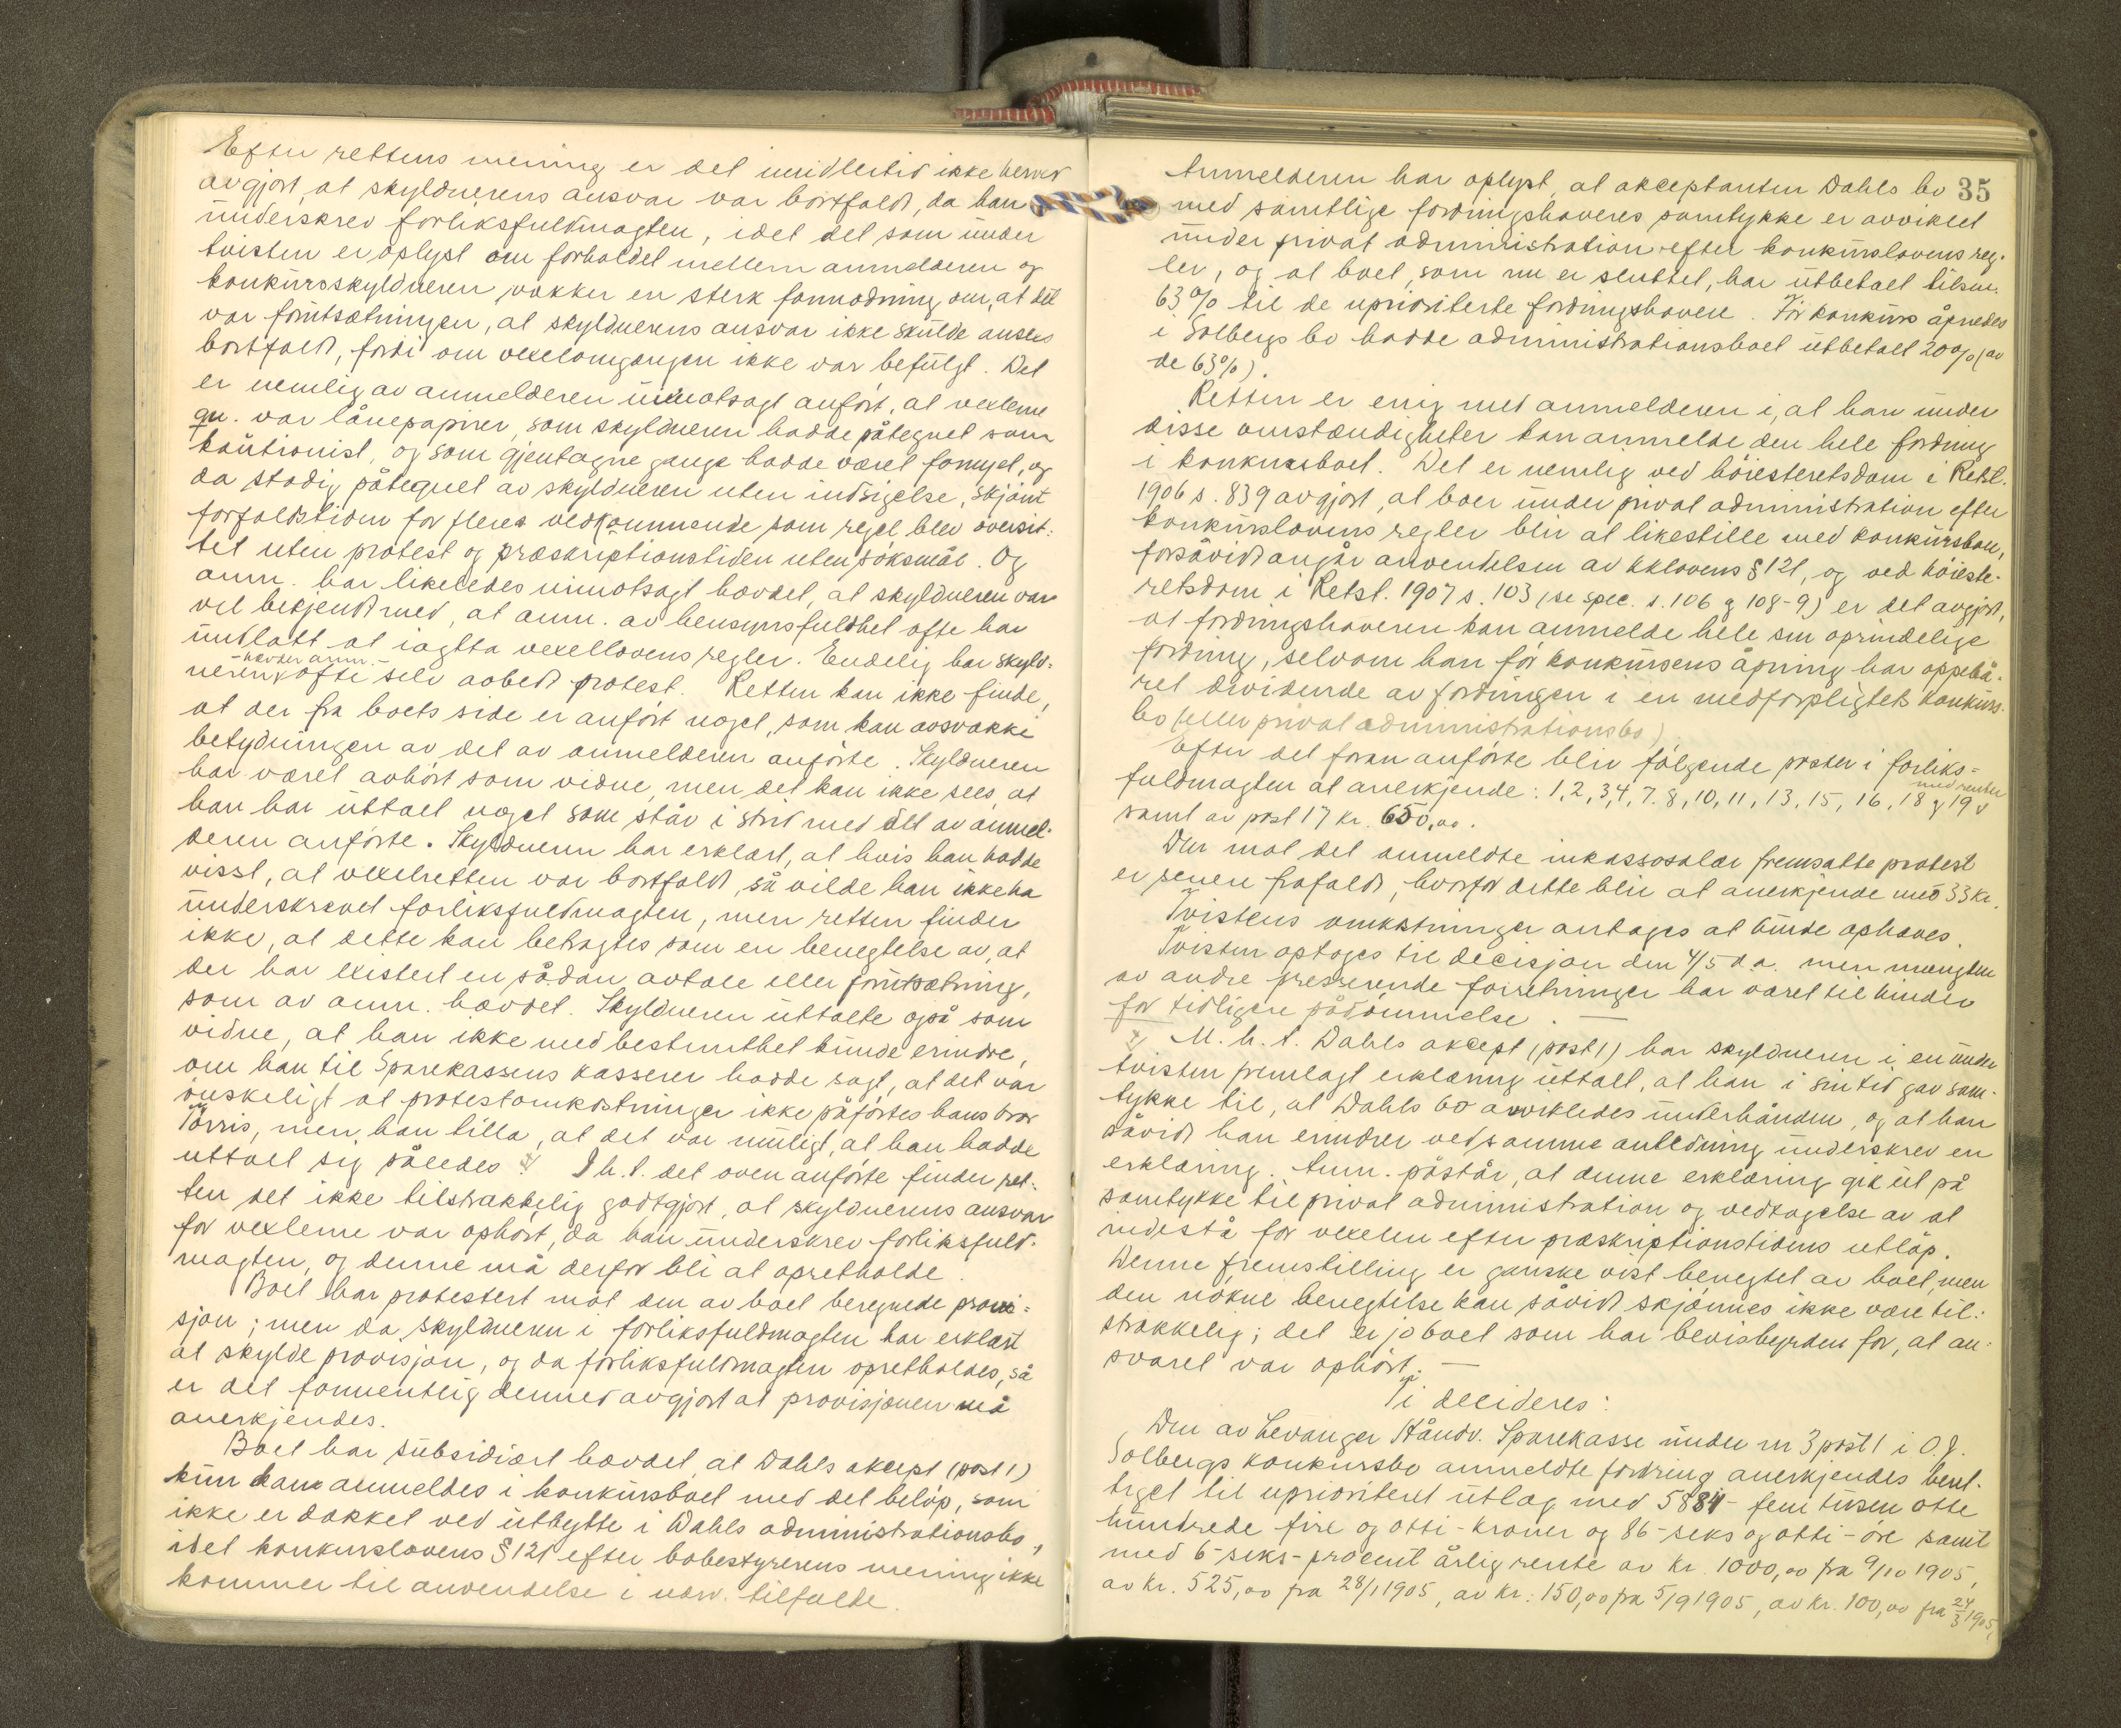 Efter rettens mening er det imidlertid ikke herved
avgjort, at skyldnerens ansvar var bortfaldt, da han
underskrev forliksfuldmagten, idet det som under
tvisten er oplyst om forholdet mellem anmelderen og
konkursskyldneren vækker en sterk formodning om, at det
var forutsætningen, at skyldnerens ansvar ikke skulde ansees
bortfaldt, fordi om vexelomgangen ikke var befulgt. Det
er nemlig av anmelderen uimotsagt anført, at vexlerne
qu. var lånepapirer, som skyldneren hadde påtegnet som
kautionist, og som gjentagne gange hadde været fornyet, og
da stadig påtegnet av skyldneren uten indsigelse, skjønt
forfaldstiden for fleres vedkommende som regel blev oversit-
tet uten protest og præskriptionstiden uten søksmål. Og
anm. har likeledes uimotsagt hævdet, at skyldneren var
vel bekjendt med, at anm. av hensynsfuldhet ofte har
undlatt at iagtta vexellovens regler. Endelig har skyld-
hævder anm.
neren ofte selv avbedt protest. Retten kan ikke finde,
at der fra boets side er anført noget, som kan avsvække
betydningen av det av anmelderen anførte. Skyldneren
har været avhørt som vidne, men det kan ikke sees, at
han har uttalt noget som står i strid med det av anmel-
deren anførte. Skyldneren har erklært, at hvis han hadde
visst, at vexelretten var bortfaldt, så vilde han ikke ha
underskrevet forliksfuldmagten, men retten finder
ikke, at dette kan betragtes som en benegtelse av, at
der har existert en sådan avtale eller forutsætning,
som av anm. hævdet. Skyldneren uttalte også som
vidne, at han ikke med bestemthet kunde erindre,
om han til Sparekassens kasserer hadde sagt, at det var
ønskeligt at protestomkostninger ikke påførtes hans bror
Tørris, men han tilla, at det var muligt, at han hadde
uttalt sig således I h. t. det oven anførte finder ret-
ten det ikke tilstrækkelig godtgjort, at skyldnerens ansvar
for vexlerne var ophørt, da han underskrev forliksfuld-
magten, og denne må derfor bli at opretholde.
Boet har protestert mot den av boet beregnede provi-
sjon; men da skyldneren i forliksfuldmagten har erklært
at skylde provisjon, og da forliksfuldmagten opretholdes, så
er det formentlig dermed avgjort at provisjonen må
anerkjendes.
Boet har subsidiært hævdet at Dahls akcept (post 1)
kun kan anmeldes i konkursboet med det beløp, som
ikke er dækket ved utbytte i Dahls administrationsbo,
idet konkurslovens § 121 efter bobestyrerens mening ikke
kommer til anvendelse i nærv. tilfælde.
35
Anmelderen har oplyst, at akceptanten Dahls bo
med samtlige fordringshaveres samtykke er avviklet
under privat administration efter konkurslovens reg-
ler, og at boet, som nu er sluttet, har utbetalt tilsm.
63% til de uprioriterte fordringshavere. Før konkurs åpnedes
i Solbergs bo hadde administrationsboet utbetalt 20% (av
de 63%).
Retten er enig med anmelderen i, at han under
disse omstændigheter kan anmelde den hele fordring
i konkursboet. Det er nemlig ved høiesteretsdom i Retst.
1906 s. 839 avgjort, at boer under privat administration efter
konkurslovens regler blir at likestille med konkursboer,
forsåvidt angår anvendelsen av kklovens § 121, og ved høieste-
retsdom i Retst. 1907 s. 103 (se spec. s. 106 g 108-9) er det avgjort,
at fordringshaveren kan anmelde hele sin oprindelige
fordring, selvom han før konkursens åpning har oppebå-
ret dividende av fordringen i en medforpligtets konkurs-
bo (eller privat administrationsbo).
Efter det foran anførte blir følgende poster i forliks-
med renter
fuldmagten at anerkjende: 1, 2, 3, 4, 7. 8, 10, 11, 13, 15, 16, 18 g 19
samt av post 17 kr. 650,00.
Den mot det anmeldte inkassosalær fremsatte protest
er senere frafaldt, hvorfor dette blir at anerkjende med 33 kr.
Tvistens omkostninger antages at burde ophæves.
Tvisten optoges til decisjon den 4/5 d.a. men mengden
av andre presserende forretninger har været til hinder
for tidligere pådømmelse. —
M. h. t. Dahls akcept (post 1) har skyldneren i en under
tvisten fremlagt erklæring uttalt, at han i sin tid gav sam-
tykke til, at Dahls bo avvikledes underhånden, og at han
såvidt han erindrer ved samme anledning underskrev en
erklæring. Anm. påstår, at denne erklæring gik ut på
samtykke til privat administration og vedtagelse av at
indestå for vexelen efter præskriptionstidens utløp.
Denne fremstilling er ganske vist benegtet av boet, men
den nøkne benegtelse kan såvidt skjønnes ikke være til-
strækkelig; det er jo boet som har bevisbyrden for, at an-
svaret var ophørt. —
Ti decideres:
Den av Levanger Håndv. Sparekasse under nr 3 post 1 i O. J.
Solbergs konkursbo anmeldte fordring anerkjendes beret-
tiget til uprioritert utlæg med 5884 - fem tusen otte
hundrede fire og otti - kroner og 86 - seks og otti - øre samt
med 6 - seks - procent årlig rente av kr. 1000,00 fra 9/10 1905,
av kr. 525,00 fra 28/1 1905, av kr. 150,00 fra 5/9 1905, av kr. 100,00 fra 24/3 1905,